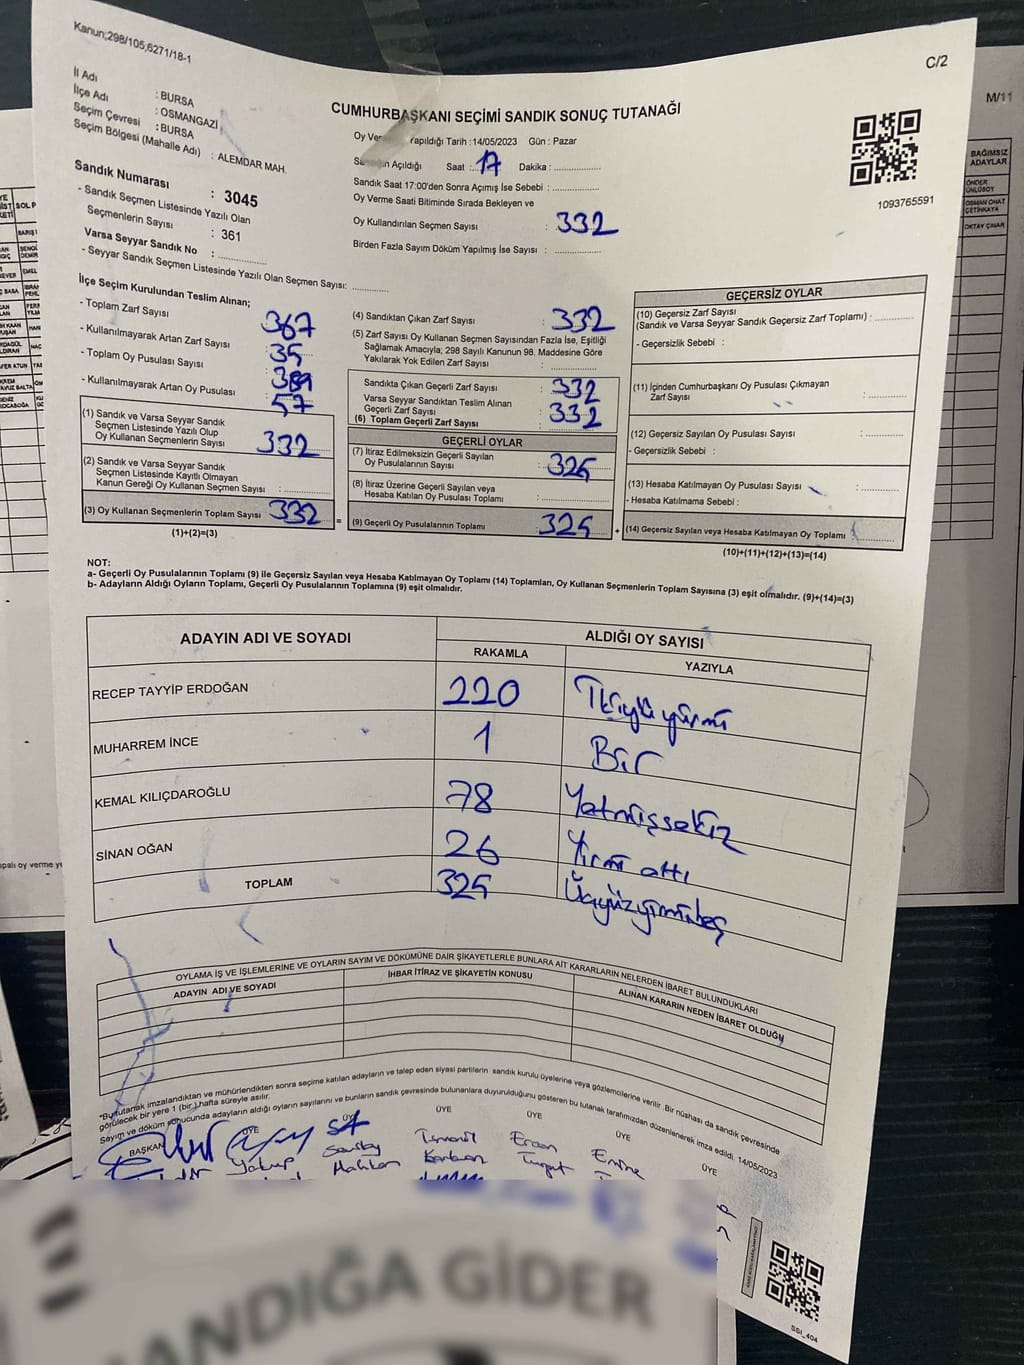 Kanun;298/105;6271/18-1
C/2
M/11
İl Adı : BURSA
İlçe Adı : OSMANGAZİ
Seçim Çevresi : BURSA
Seçim Bölgesi (Mahalle Adı) : ALEMDAR MAH.
CUMHURBAŞKANI SEÇİMİ SANDIK SONUÇ TUTANAĞI
Oy Ver apıldığı Tarih : 14/05/2023 Gün : Pazar
Açıldığı Saat : 17 Dakika :
Sandık Saat 17:00'den Sonra Açımış İse Sebebi :
Oy Verme Saati Bitiminde Sırada Bekleyen ve
Oy Kullandırılan Seçmen Sayısı : 332
Birden Fazla Sayım Döküm Yapılmış İse Sayısı :
1093765591
Sandık Numarası : 3045
- Sandık Seçmen Listesinde Yazılı Olan
Seçmenlerin Sayısı : 361
Varsa Seyyar Sandık No :
- Seyyar Sandık Seçmen Listesinde Yazılı Olan Seçmen Sayısı:
İlçe Seçim Kurulundan Teslim Alınan;
- Toplam Zarf Sayısı : 367
- Kullanılmayarak Artan Zarf Sayısı : 35
- Toplam Oy Pusulası Sayısı :
- Kullanılmayarak Artan Oy Pusulası : 57
(1) Sandık ve Varsa Seyyar Sandık
Seçmen Listesinde Yazılı Olup
Oy Kullanan Seçmenlerin Sayısı 332
(2) Sandık ve Varsa Seyyar Sandık
Seçmen Listesinde Kayıtlı Olmayan
Kanun Gereği Oy Kullanan Seçmen Sayısı :
(3) Oy Kullanan Seçmenlerin Toplam Sayısı 332 =
(1)+(2)=(3)
(4) Sandıktan Çıkan Zarf Sayısı : 332
(5) Zarf Sayısı Oy Kullanan Seçmen Sayısından Fazla İse, Eşitliği
Sağlamak Amacıyla; 298 Sayılı Kanunun 98. Maddesine Göre
Yakılarak Yok Edilen Zarf Sayısı :
Sandıkta Çıkan Geçerli Zarf Sayısı : 332
Varsa Seyyar Sandıktan Teslim Alınan
Geçerli Zarf Sayısı : 332
(6) Toplam Geçerli Zarf Sayısı :
GEÇERLİ OYLAR
(7) İtiraz Edilmeksizin Geçerli Sayılan
Oy Pusulalarının Sayısı : 325
(8) İtiraz Üzerine Geçerli Sayılan veya
Hesaba Katılan Oy Pusulası Toplamı :
(9) Geçerli Oy Pusulalarının Toplamı : 325 +
GEÇERSİZ OYLAR
(10) Geçersiz Zarf Sayısı
(Sandık ve Varsa Seyyar Sandık Geçersiz Zarf Toplamı) :
- Geçersizlik Sebebi :
(11) İçinden Cumhurbaşkanı Oy Pusulası Çıkmayan
Zarf Sayısı :
(12) Geçersiz Sayılan Oy Pusulası Sayısı :
- Geçersizlik Sebebi :
(13) Hesaba Katılmayan Oy Pusulası Sayısı :
- Hesaba Katılmama Sebebi :
(14) Geçersiz Sayılan veya Hesaba Katılmayan Oy Toplamı
(10)+(11)+(12)+(13)=(14)
NOT:
a- Geçerli Oy Pusulalarının Toplamı (9) ile Geçersiz Sayılan veya Hesaba Katılmayan Oy Toplamı (14) Toplamları, Oy Kullanan Seçmenlerin Toplam Sayısına (3) eşit olmalıdır. (9)+(14)=(3)
b- Adayların Aldığı Oyların Toplamı, Geçerli Oy Pusulalarının Toplamına (9) eşit olmalıdır.
ADAYIN ADI VE SOYADI
ALDIĞI OY SAYISI
RAKAMLA YAZIYLA
RECEP TAYYİP ERDOĞAN 220 İkiyüzyirmi
MUHARREM İNCE 1 Bir
KEMAL KILIÇDAROĞLU 78 Yetmişsekiz
SİNAN OĞAN 26 Yirmi altı
TOPLAM 325 Üçyüzyirmibeş
OYLAMA İŞ VE İŞLEMLERİNE VE OYLARIN SAYIM VE DÖKÜMÜNE DAİR ŞİKAYETLERLE BUNLARA AİT KARARLARIN NELERDEN İBARET BULUNDUKLARI
ADAYIN ADI VE SOYADI
İHBAR İTİRAZ VE ŞİKAYETİN KONUSU
ALINAN KARARIN NEDEN İBARET OLDUĞU
*Bu tutanak imzalandıktan ve mühürlendikten sonra seçime katılan adayların ve talep eden siyasi partilerin sandık kurulu üyelerine veya gözlemcilerine verilir. Bir nüshası da sandık çevresinde
görülecek bir yere 1 (bir) hafta süreyle asılır.
Sayım ve döküm sonucunda adayların aldığı oyların sayılarını ve bunların sandık çevresinde bulunanlara duyurulduğunu gösteren bu tutanak tarafımızdan düzenlenerek imza edildi. 14/05/2023
BAŞKAN ÜYE ÜYE ÜYE ÜYE ÜYE ÜYE
Yakup
İsmail
Ercan Turgut
Emine
SSI_404
BAĞIMSIZ
ADAYLAR
ÖNDER
ÜNLÜSOY
OSMAN ONAT
ÇETİNKAYA
OKTAY ÇINAR
SOL P
palı oy verme ye
SANDIĞA GİDER